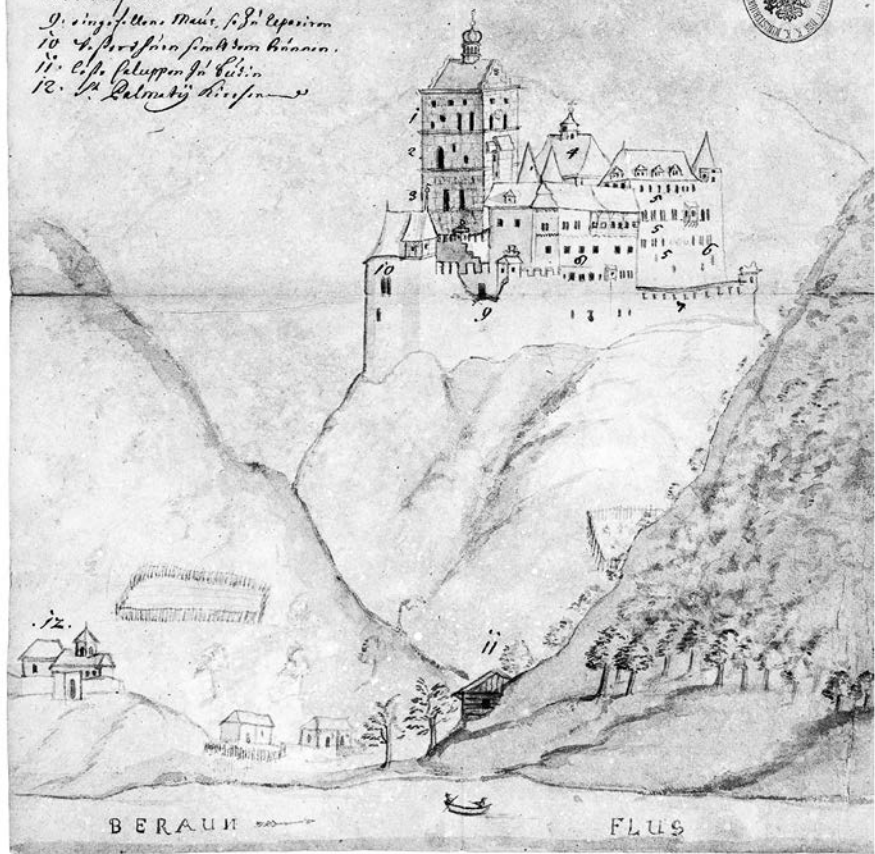 9. eingefallene Maur, so zu repariren
10 Wasserthurn sambt dem brunnen.
11. Erste Caluppen zu Budin
12. St. Palmatij Kirchen
1
2
3
4
5
5
5
6
7
9
10
11
.12.
BERAUN
FLUS